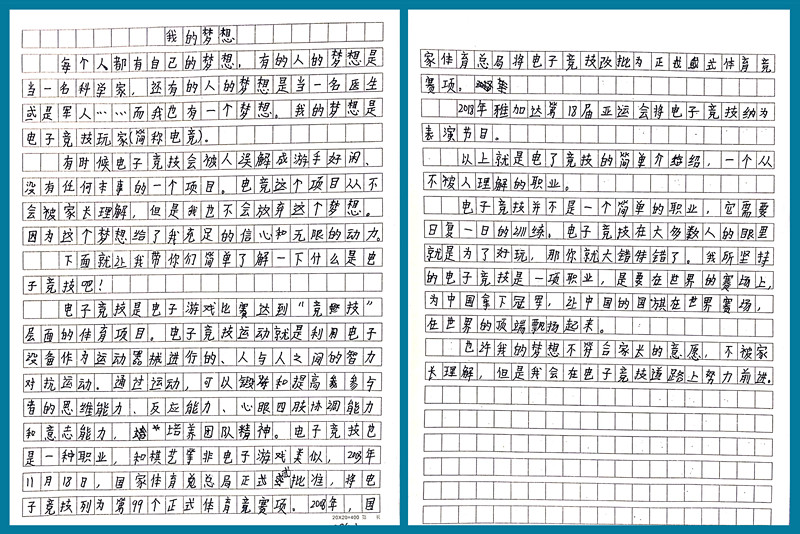 我的梦想
每个人都有自己的梦想，有的人的梦想是
当一名科学家，还有的人的梦想是当一名医生
或是军人……而我也有一个梦想。我的梦想是
电子竞技玩家(简称电竞)。
有时候电子竞技会被人误解成游手好闲、
没有任何本事的一个项目。电竞这个项目从不
会被家长理解，但是我也不会放弃这个梦想。
因为这个梦想给了我充足的信心和无限的动力。
下面就让我带你们简单了解一下什么是电
子竞技吧！
电子竞技是电子游戏比赛达到“竞技”
层面的体育项目。电子竞技运动就是利用电子
设备作为运动器械进行的、人与人之间的智力
对抗运动。通过运动，可以锻炼和提高参与
者的思维能力、反应能力、心眼四肢协调能力
和意志能力，培养团队精神。电子竞技也
是一种职业，和棋艺等非电子游戏类似，2003年
11月18日，国家体育总局正式批准，将电
子竞技列为第99个正式体育竞赛项。2008年，国
20X20=400
家体育总局将电子竞技改批为正式体育竞
赛项。
2018年雅加达第18届亚运会将电子竞技纳为
表演节目。
以上就是电子竞技的简单介绍，一个从
不被人理解的职业。
电子竞技并不是一个简单的职业，它需要
日复一日的训练。电子竞技在大多数人的眼里
就是为了好玩，那你就大错特错了。我所坚持
的电子竞技是一项职业，是要在世界的赛场上，
为中国拿下冠军，让中国的国旗在世界赛场，
在世界的顶端飘扬起来。
也许我的梦想不符合家长的意愿，不被家
长理解，但是我会在电子竞技道路上努力前进。